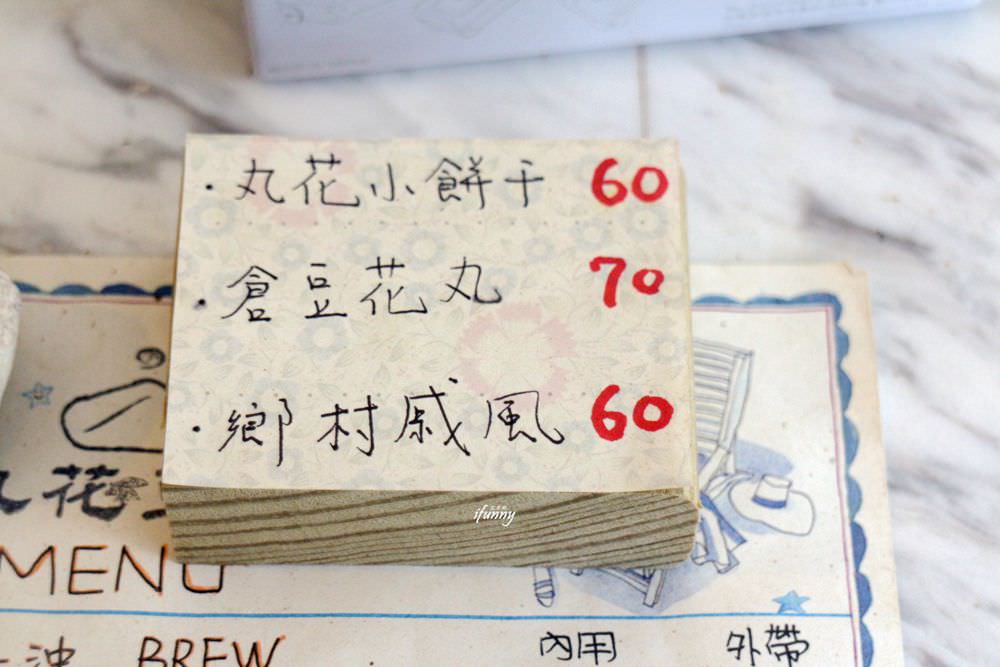 · 丸花小餅干 60
· 倉豆花丸 70
· 鄉村戚風 60
ifunny
花
MENU
沖 BREW 內用 外帶